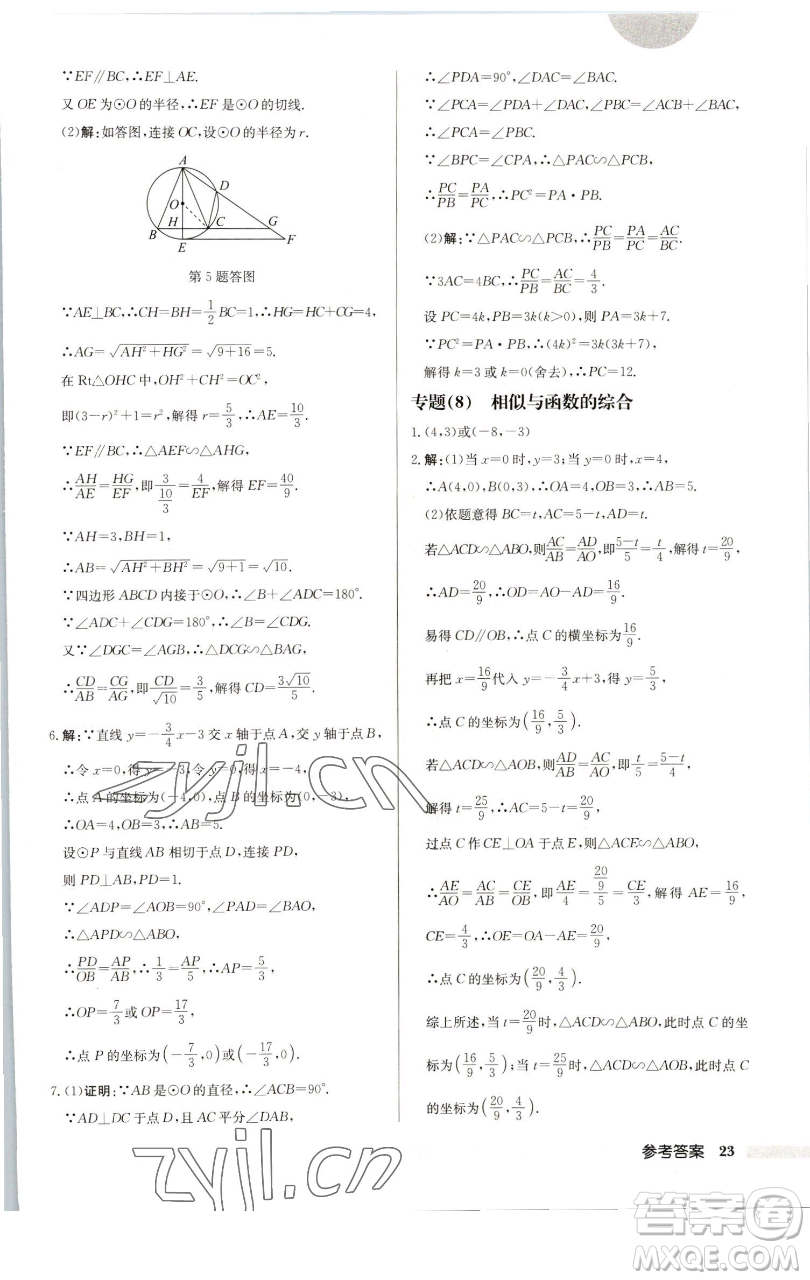 ∵EF∥BC,∴EF⊥AE.
又OE为⊙O的半径,∴EF是⊙O的切线.
(2)解:如答图,连接OC,设⊙O的半径为r.
A
D
O
H
C
G
B
E
F
第5题答图
∵AE⊥BC,∴CH=BH=1/2BC=1,∴HG=HC+CG=4,
∴AG=√(AH²+HG²)=√(9+16)=5.
在Rt△OHC中,OH²+CH²=OC²,
即(3-r)²+1=r²,解得r=5/3,∴AE=10/3.
∵EF∥BC,∴△AEF∽△AHG,
∴AH/AE=HG/EF,即3/(10/3)=4/EF,解得EF=40/9.
∵AH=3,BH=1,
∴AB=√(AH²+BH²)=√(9+1)=√10.
∵四边形ABCD内接于⊙O,∴∠B+∠ADC=180°.
∵∠ADC+∠CDG=180°,∴∠B=∠CDG.
又∵∠DGC=∠AGB,∴△DCG∽△BAG,
∴CD/AB=CG/AG,即CD/√10=3/5,解得CD=3√10/5.
6.解:∵直线y=-3/4x-3交x轴于点A,交y轴于点B,
∴令x=0,得y=-3,令y=0,得x=-4,
∴点A的坐标为(-4,0),点B的坐标为(0,-3),
∴OA=4,OB=3,∴AB=5.
设⊙P与直线AB相切于点D,连接PD,
则PD⊥AB,PD=1.
∵∠ADP=∠AOB=90°,∠PAD=∠BAO,
∴△APD∽△ABO,
∴PD/OB=AP/AB,∴1/3=AP/5,∴AP=5/3,
∴OP=7/3或OP=17/3,
∴点P的坐标为(-7/3,0)或(-17/3,0).
7.(1)证明:∵AB是⊙O的直径,∴∠ACB=90°.
∵AD⊥DC于点D,且AC平分∠DAB,
∴∠PDA=90°,∠DAC=∠BAC.
∵∠PCA=∠PDA+∠DAC,∠PBC=∠ACB+∠BAC,
∴∠PCA=∠PBC.
∵∠BPC=∠CPA,∴△PAC∽△PCB,
∴PC/PB=PA/PC,∴PC²=PA·PB.
(2)解:∵△PAC∽△PCB,∴PC/PB=PA/PC=AC/BC.
∵3AC=4BC,∴PC/PB=AC/BC=4/3.
设PC=4k,PB=3k(k>0),则PA=3k+7.
∵PC²=PA·PB,∴(4k)²=3k(3k+7),
解得k=3或k=0(舍去),∴PC=12.
专题(8) 相似与函数的综合
1.(4,3)或(-8,-3)
2.解:(1)当x=0时,y=3;当y=0时,x=4,
∴A(4,0),B(0,3),∴OA=4,OB=3,∴AB=5.
(2)依题意得BC=t,AC=5-t,AD=t.
若△ACD∽△ABO,则AC/AB=AD/AO,即(5-t)/5=t/4,解得t=20/9,
∴AD=20/9,∴OD=AO-AD=16/9.
易得CD∥OB,∴点C的横坐标为16/9.
再把x=16/9代入y=-3/4x+3,得y=5/3,
∴点C的坐标为(16/9,5/3).
若△ADC∽△ABO,则AD/AB=AC/AO,即t/5=(5-t)/4,
解得t=25/9,∴AC=5-t=20/9.
过点C作CE⊥OA于点E,则△ACE∽△ABO,
∴AE/AO=AC/AB=CE/OB,即AE/4=(20/9)/5=CE/3,解得AE=16/9,
CE=4/3,∴OE=OA-AE=20/9,
∴点C的坐标为(20/9,4/3).
综上所述,当t=20/9时,△ACD∽△ABO,此时点C的坐
标为(16/9,5/3);当t=25/9时,△ADC∽△ABO,此时点C
的坐标为(20/9,4/3).
参考答案 23
zyjl.cn
zyjl.cn
答案圈
MXQE.COM